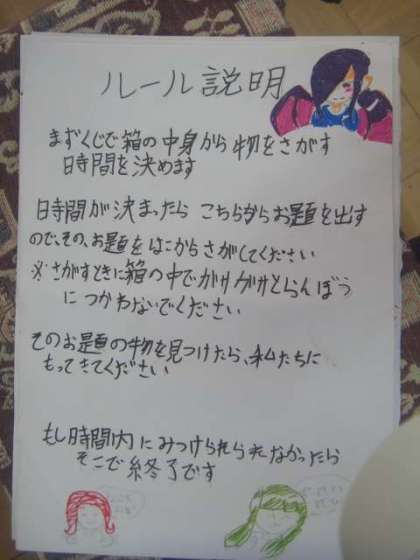 ルール説明
まずくじで箱の中身から物をさがす
時間を決めます
時間が決まったら こちらからお題を出す
ので、その、お題をはこからさがしてください
※さがすときに箱の中でガサガサとらんぼう
につかわないでください
そのお題の物を見つけたら、私たちに
もってきてください
もし時間内にみつけられられなかったら
そこで終了です